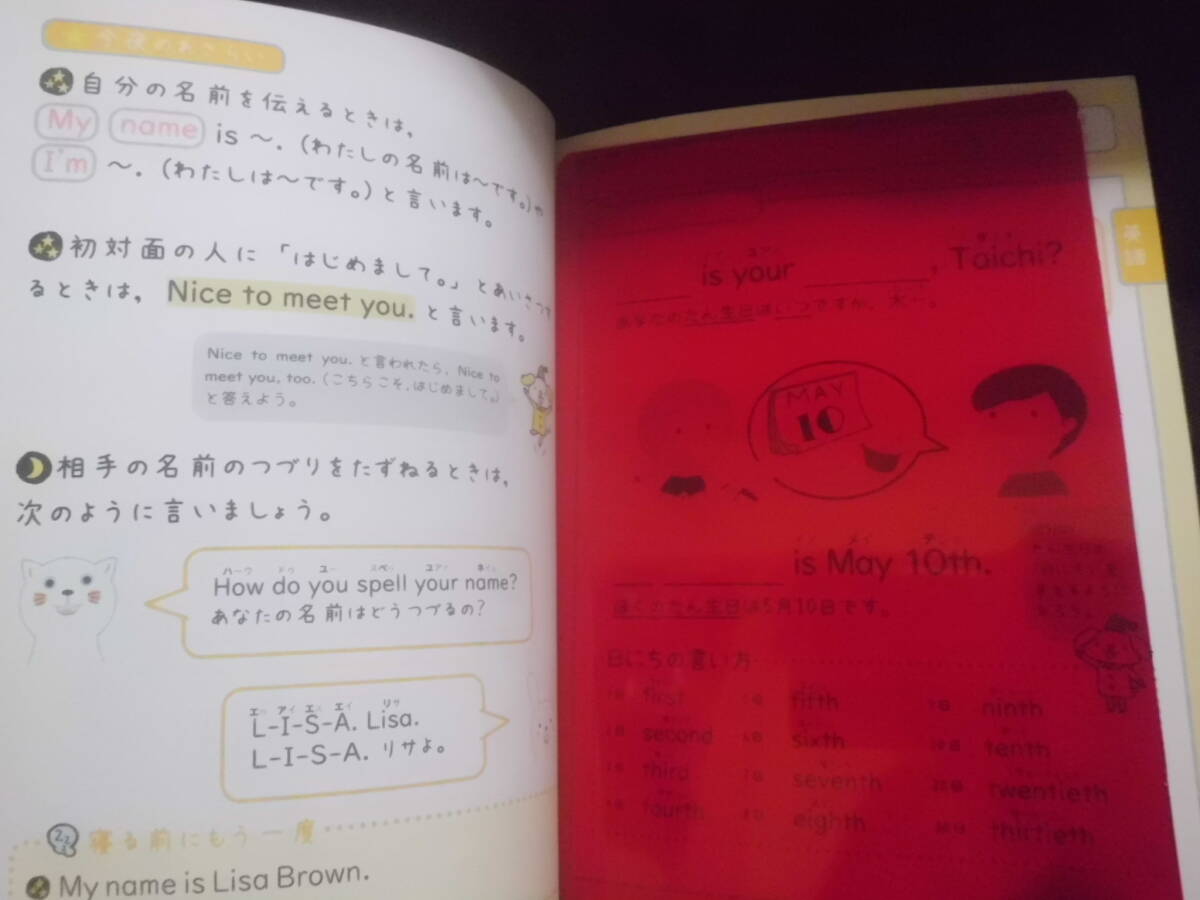 今夜のおさらい
自分の名前を伝えるときは，
My name is ～.（わたしの名前は～です。）や
I'm ～.（わたしは～です。）と言います。
初対面の人に「はじめまして。」とあいさつす
るときは， Nice to meet you. と言います。
Nice to meet you. と言われたら，Nice to
meet you, too.（こちらこそ，はじめまして。）
と答えよう。
相手の名前のつづりをたずねるときは，
次のように言いましょう。
ハーウ ドゥ ユー スペッ ユアァ ネイム
How do you spell your name?
あなたの名前はどうつづるの？
エー アイ エス エイ リサ
L-I-S-A. Lisa.
L-I-S-A. リサよ。
寝る前にもう一度
My name is Lisa Brown.
英語
is your , Taichi?
あなたのたん生日はいつですか，太一。
MAY
10
is May 10th.
ぼくのたん生日は5月10日です。
日にちの言い方
first fifth ninth
second sixth tenth
third seventh twentieth
fourth eighth thirtieth